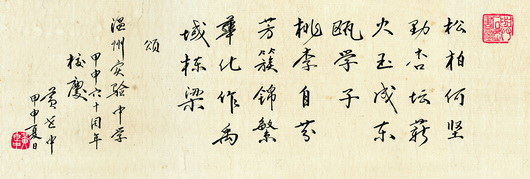 松柏何坚
劲杏坛薪
火玉成东
瓯学子
桃李自芬
芳簇锦繁
华化作禹
域栋梁
颂
温州实验中学
甲申六十周年
校庆
黄
甲申夏日